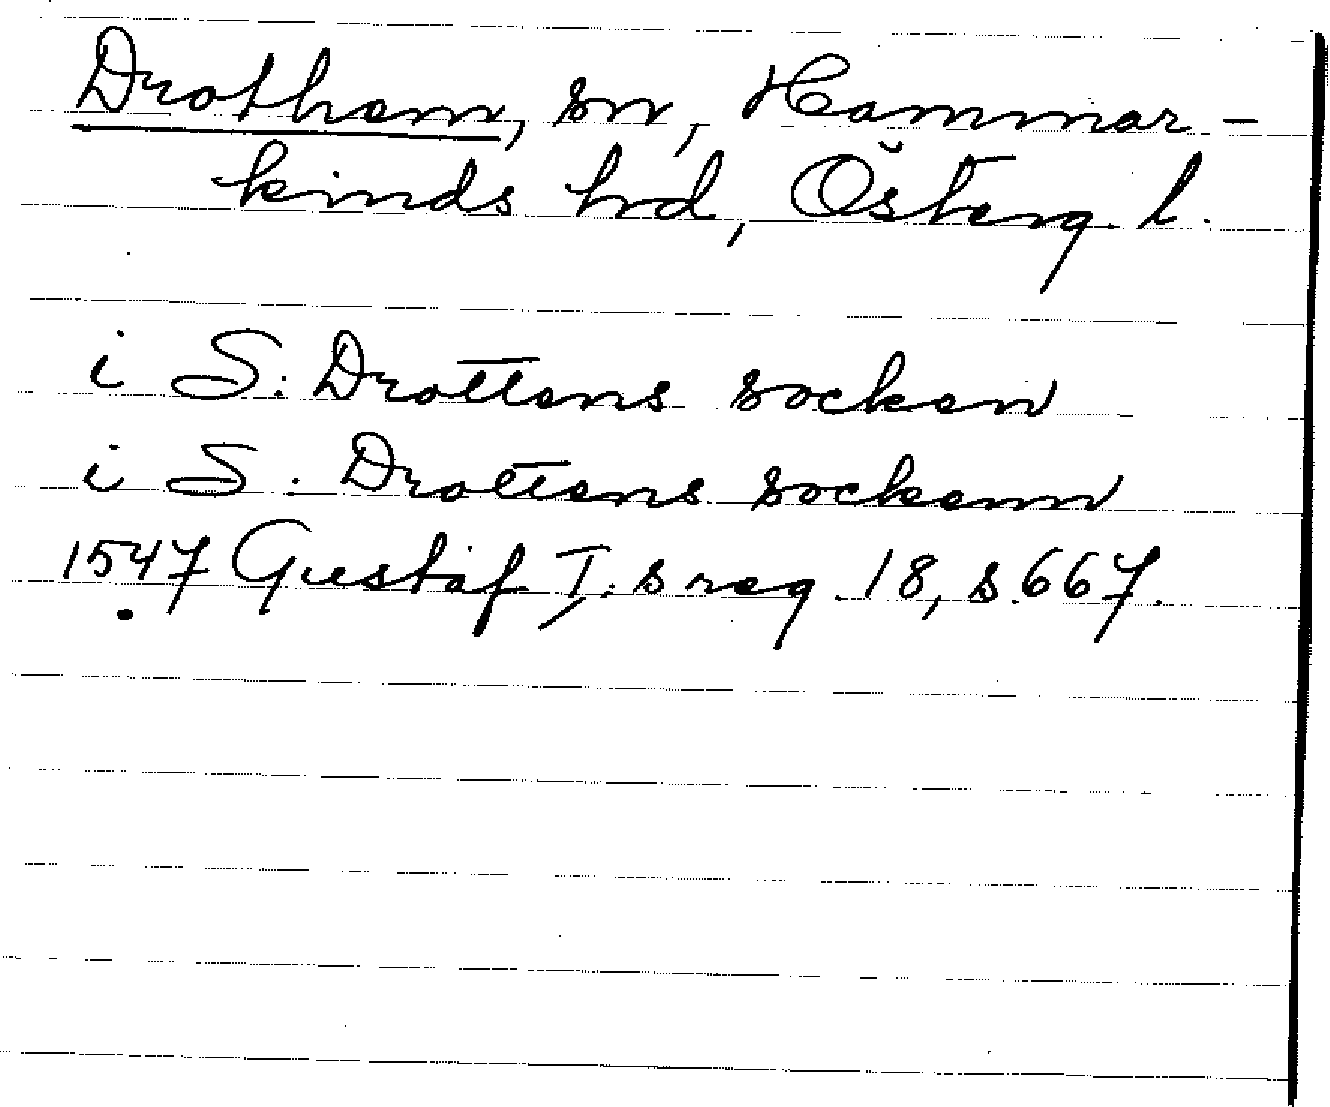 Drotham, sn, Hammar-
kinds hd, Österg. l.
i S. Drottens socken
i S. Drottens sockenn
1547 Gustaf I:s reg. 18, s. 667.